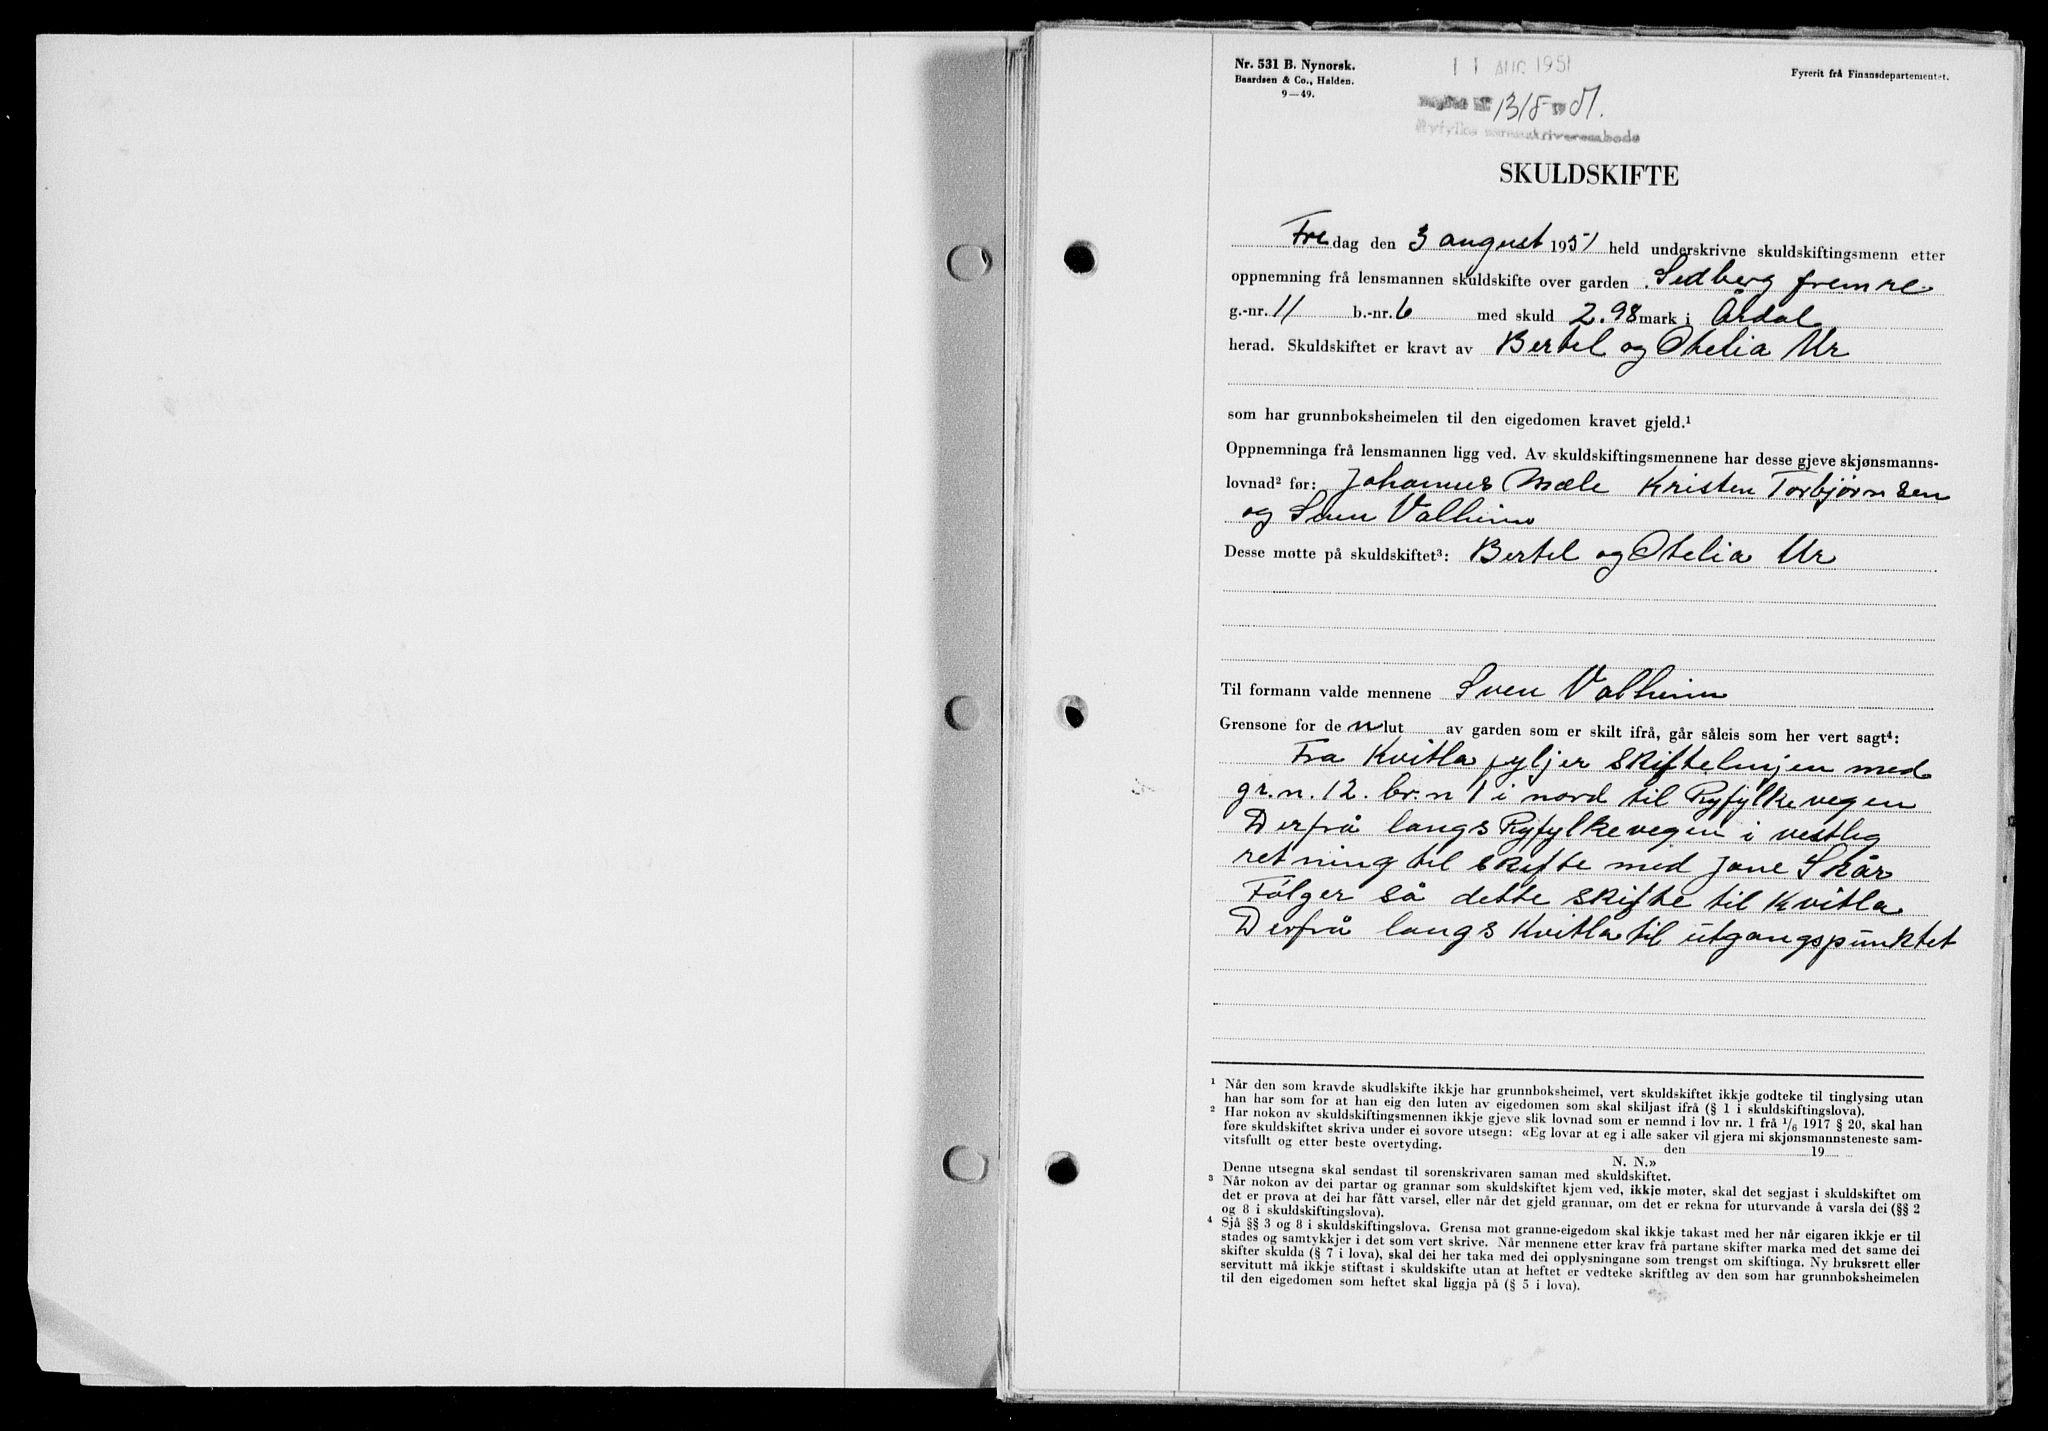 Nr. 531 B. Nynorsk.
Baardsen & Co., Halden.
9—49.
11 AUG 1951
13/8 19 51.
Ryfylke sorenskriverembede
Fyrerit frå Finansdepartementet.
SKULDSKIFTE
Fredag den 3 august 1951 held underskrivne skuldskiftingsmenn etter
oppnemning frå lensmannen skuldskifte over garden Sedberg fremre
g.-nr. 11 b.-nr. 6 med skuld 2.98 mark i Årdal
herad. Skuldskiftet er kravt av Bertel og Otelia Ur
som har grunnboksheimelen til den eigedomen kravet gjeld.¹
Oppnemninga frå lensmannen ligg ved. Av skuldskiftingsmennene har desse gjeve skjønsmanns-
lovnad² før: Johannes Mæle Kristen Torbjørnsen
og Sven Valheim
Desse møtte på skuldskiftet³: Bertel og Otelia Ur
Til formann valde mennene Sven Valheim
Grensone for de n lut av garden som er skilt ifrå, går såleis som her vert sagt⁴:
Fra Kvitla fyljer skiftelinjen med
gr.n. 12. br.n 1 i nord til Ryfylkevegen
Derfrå langs Ryfylkevegen i vestleg
retning til skifte med Jone Skår
Følger så dette skifte til Kvitla
Derfrå langs Kvitla til utgangspunktet
¹ Når den som kravde skudlskifte ikkje har grunnboksheimel, vert skuldskiftet ikkje godteke til tinglysing utan
han har som for at han eig den luten av eigedomen som skal skiljast ifrå (§ 1 i skuldskiftingslova).
² Har nokon av skuldskiftingsmennen ikkje gjeve slik lovnad som er nemnd i lov nr. 1 frå 1/6 1917 § 20, skal han
føre skuldskiftet skriva under ei sovore utsegn: «Eg lovar at eg i alle saker vil gjera mi skjønsmannsteneste sam-
vitsfullt og etter beste overtyding. den 19
N. N.»
Denne utsegna skal sendast til sorenskrivaren saman med skuldskiftet.
³ Når nokon av dei partar og grannar som skuldskiftet kjem ved, ikkje møter, skal det segjast i skuldskiftet om
det er prova at dei har fått varsel, eller når det gjeld grannar, om det er rekna for uturvande å varsla dei (§§ 2
og 8 i skuldskiftingslova).
⁴ Sjå §§ 3 og 8 i skuldskiftingslova. Grensa mot granne-eigedom skal ikkje takast med her når eigaren ikkje er til
stades og samtykkjer i det som vert skrive. Når mennene etter krav frå partane skifter marka med det same dei
skifter skulda (§ 7 i lova), skal dei her taka med dei opplysningane som trengst om skiftinga. Ny bruksrett eller
servitutt må ikkje stiftast i skuldskifte utan at heftet er vedteke skriftleg av den som har grunnboksheimelen
til den eigedomen som heftet skal liggja på (§ 5 i lova).